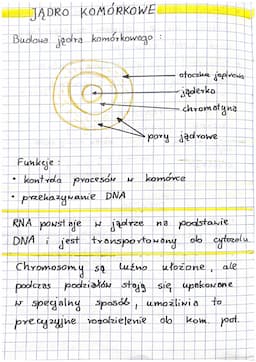 JĄDRO KOMÓRKOWE
Budowa jądra komórkowego :
otoczka jądrowa
jąderko
chromatyna
pory jądrowe
Funkcje :
• kontrola procesów w komórce
• przekazywanie DNA
RNA powstaje w jądrze na podstawie
DNA i jest transportowany do cytozolu
Chromosomy są luźno ułożone, ale
podczas podziałów stają się upakowane
w specjalny sposób, umożliwia to
precyzyjne rozdzielenie do kom. pot.